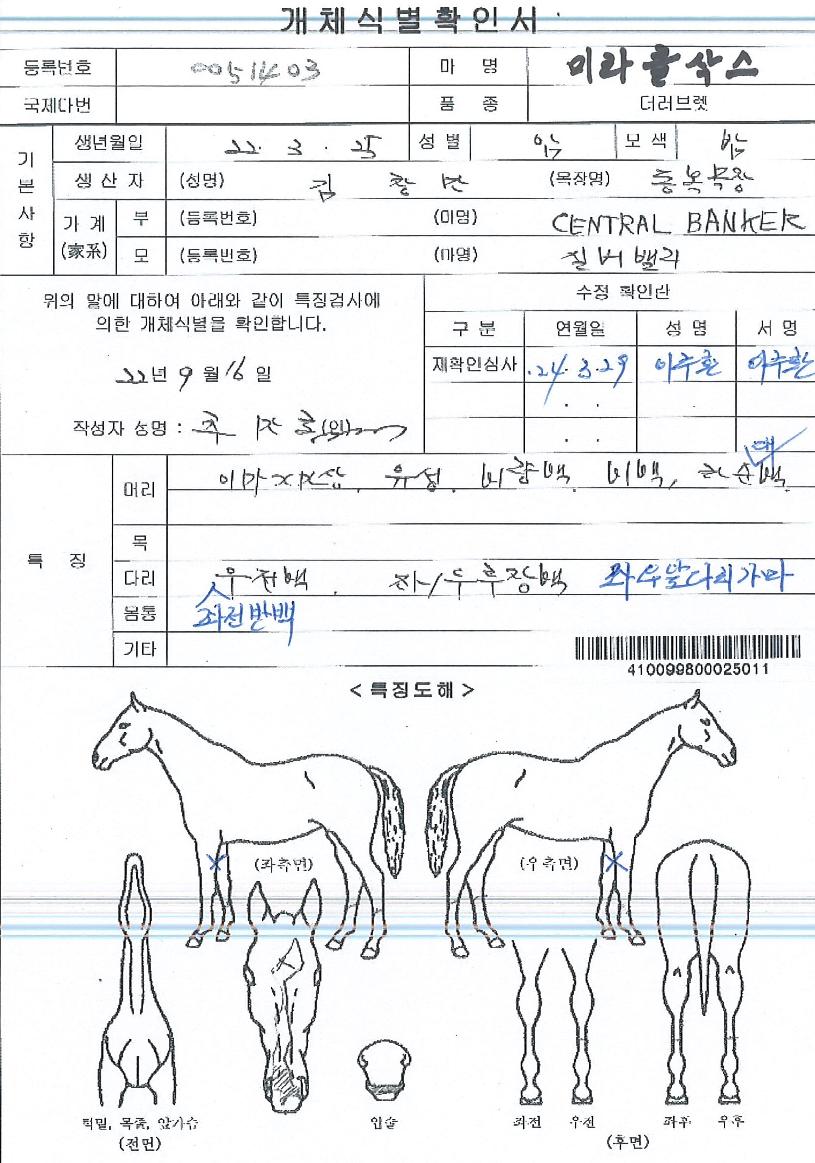 개체식별확인서
등록번호 0051403 마 명 미라클삭스
국제다번 품 종 더러브렛
기본사항
생년월일 22. 3. 25 성 별 암 모 색 밤
생 산 자 (성명) 김 창 만 (목장명)
가 계 (家系) 부 (등록번호) (마명) CENTRAL BANKER
모 (등록번호) (마명) 실버밸리
위의 말에 대하여 아래와 같이 특징검사에
의한 개체식별을 확인합니다.
22년 9 월 16 일
작성자 성명 : (인)
수정 확인란
구 분 연월일 성 명 서 명
재확인심사 .24. 3. 29 이주환 이주환
. .
. .
특 징
머리 이마 유성. 비량백. 비백, 하순백 대
목
다리 우전백. 좌/우후장백 좌우앞다리가마
몸통 좌전반백
기타
410099800025011
< 특징도해 >
(좌측면) (우측면)
턱밑, 목줄, 앞가슴 입술 좌전 우전 좌후 우후
(전면) (후면)